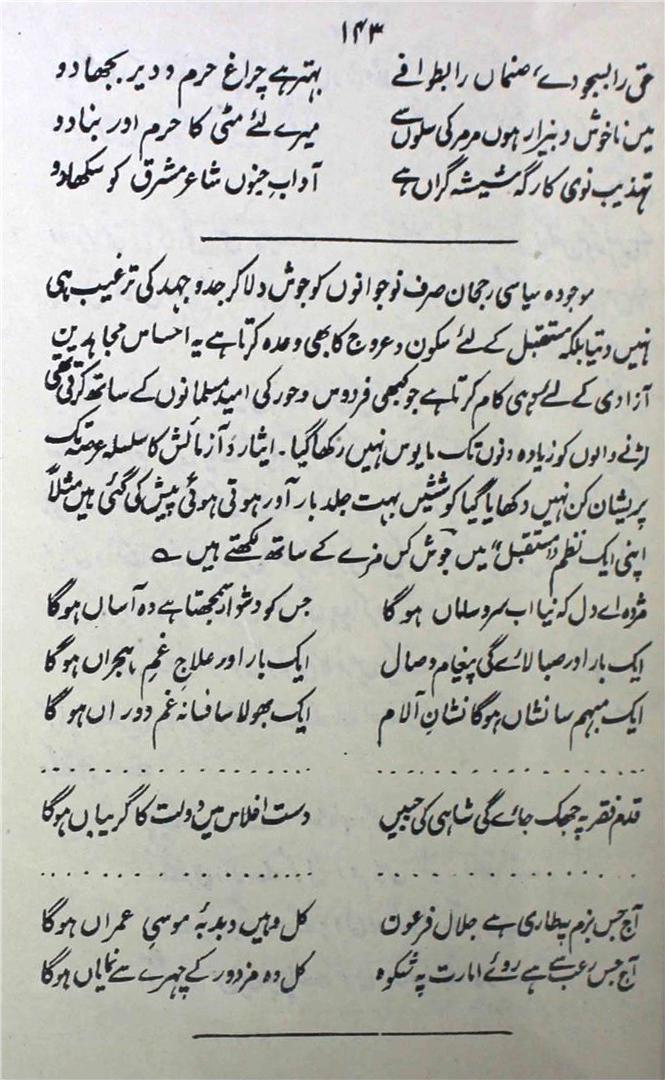 ۱۴۳
حق را بسجودے، صنماں را بطوافے بہتر ہے چراغ حرم و دیر بجھا دو
میں ناخوش و بیزار ہوں مرمر کی سلوں سے میرے لئے مٹی کا حرم اور بنا دو
تہذیب نوی کارگہ شیشہ گراں ہے آدابِ جنوں شاعر مشرق کو سکھا دو
موجودہ سیاسی رجحان صرف نوجوانوں کو جوش دلا کر جدوجہد کی ترغیب ہی
نہیں دیتا بلکہ مستقبل کے لئے سکون و عروج کا بھی وعدہ کرتا ہے یہ احساس مجاہدین
آزادی کے لئے وہی کام کرتا ہے جو کبھی فردوس و حور کی امید مسلمانوں کے ساتھ کرتی تھی
لڑنے والوں کو زیادہ دنوں تک مایوس نہیں رکھا گیا۔ ایثار و آزمائش کا سلسلہ عرصہ تک
پریشان کن نہیں دکھایا گیا کوششیں بہت جلد بار آور ہوتی ہوئی پیش کی گئی ہیں مثلاً
اپنی ایک نظم "مستقبل" میں جوش کس مزے کے ساتھ لکھتے ہیں ؎
مژدہ اے دل کہ نیا اب سروساماں ہوگا جس کو دشوار سمجھتا ہے وہ آساں ہوگا
ایک بار اور صبا لائے گی پیغام وصال ایک بار اور علاجِ غمِ ہجراں ہوگا
ایک مبہم سا نشاں ہوگا نشانِ آلام ایک بھولا سا فسانہ غم دوراں ہوگا
. . . . . . . . . . . . . . . . . . . . . . . . . . . . . .
قدم فقر پہ جھک جائے گی شاہی کی جبیں دست افلاس میں دولت کا گریباں ہوگا
. . . . . . . . . . . . . . . . . . . . . . . . . . . . . .
آج جس بزم پہ طاری ہے جلال فرعون کل وہیں دبدبۂ موسیٰ عمراں ہوگا
آج جس رعب سے ہے روئے امارت پہ شکوہ کل وہ مزدور کے چہرے سے نمایاں ہوگا